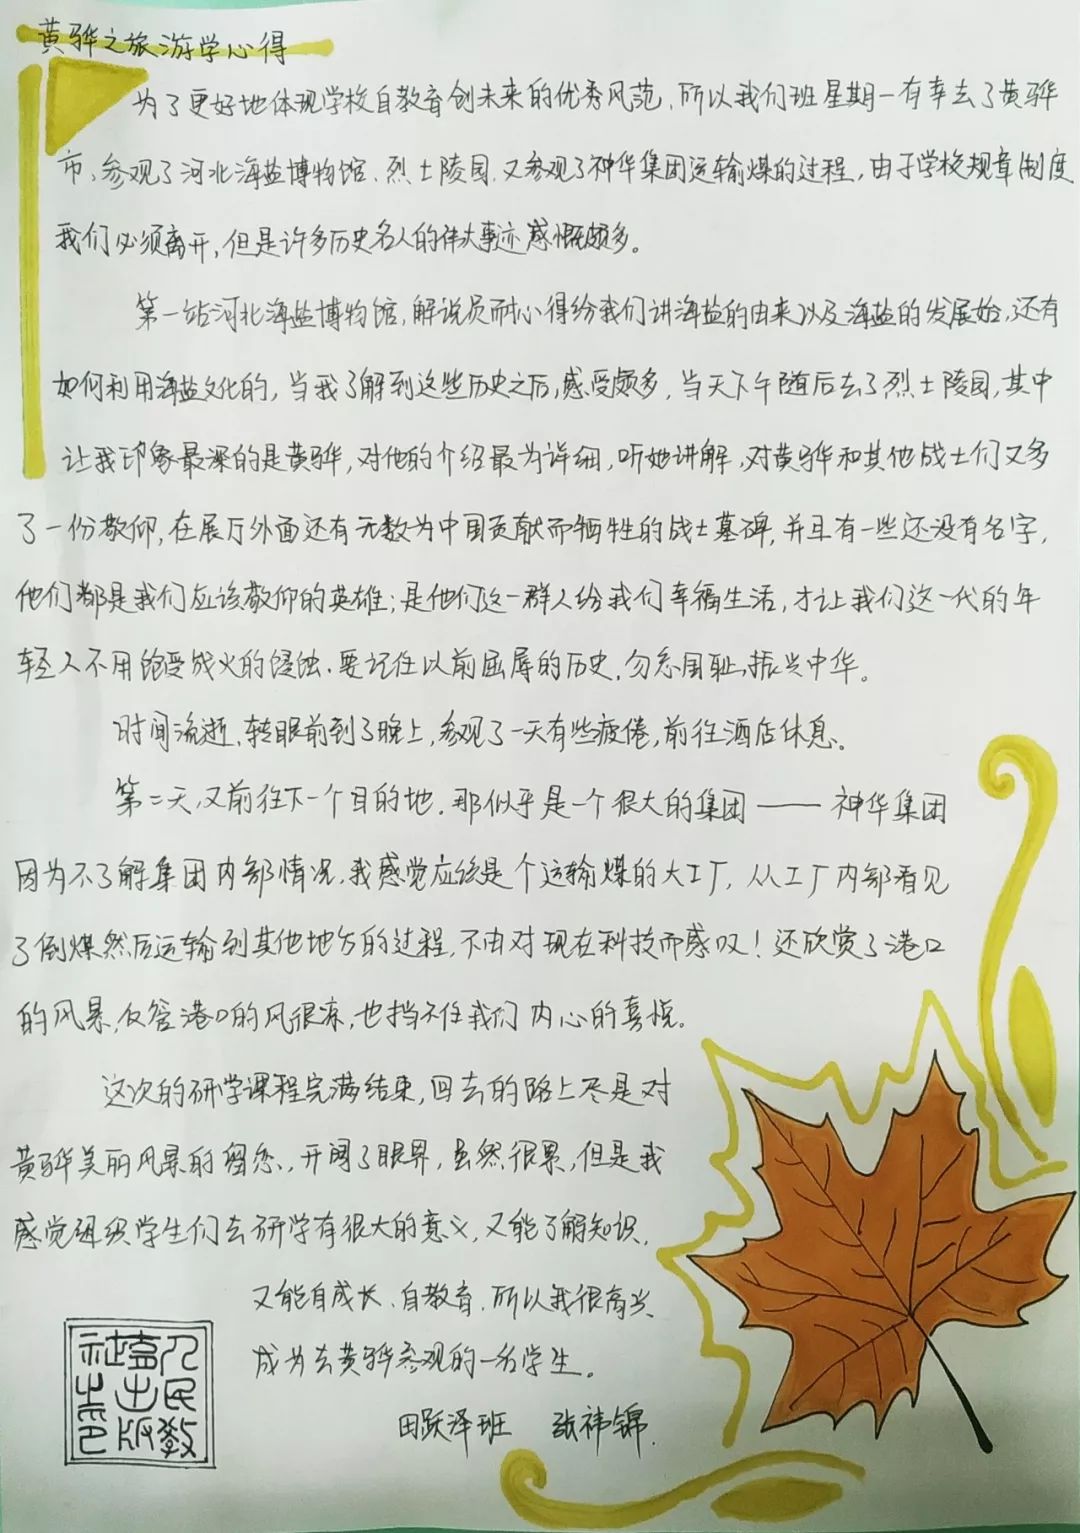 黄骅之旅游学心得
为了更好地体现学校自教育创未来的优秀风范,所以我们班星期一有幸去了黄骅
市,参观了河北海盐博物馆、烈士陵园,又参观了神华集团运输煤的过程,由于学校规章制度
我们必须离开,但是许多历史名人的伟大事迹感慨颇多。
第一站河北海盐博物馆,解说员耐心得给我们讲海盐的由来以及海盐的发展始,还有
如何利用海盐文化的,当我了解到这些历史之后,感受颇多,当天下午随后去了烈士陵园,其中
让我印象最深的是黄骅,对他的介绍最为详细,听她讲解,对黄骅和其他战士们又多
了一份敬仰,在展厅外面还有无数为中国贡献而牺牲的战士墓碑,并且有一些还没有名字,
他们都是我们应该敬仰的英雄;是他们这一群人给我们幸福生活,才让我们这一代的年
轻人不用饱受战火的侵蚀.要记住以前屈辱的历史,勿忘国耻,振兴中华。
时间流逝,转眼前到了晚上,参观了一天有些疲倦,前往酒店休息。
第二天,又前往下一个目的地.那似乎是一个很大的集团——神华集团
因为不了解集团内部情况,我感觉应该是个运输煤的大工厂,从工厂内部看见
了倒煤然后运输到其他地方的过程,不由对现在科技而感叹!还欣赏了港口
的风景,仅管港口的风很凉,也挡不住我们内心的喜悦。
这次的研学课程完满结束,回去的路上尽是对
黄骅美丽风景的留恋,开阔了眼界,虽然很累,但是我
感觉组织学生们去研学有很大的意义,又能了解知识,
又能自成长、自教育.所以我很高兴
成为去黄骅参观的一名学生。
田跃泽班 张祎锦
人民教
育出版
社之印